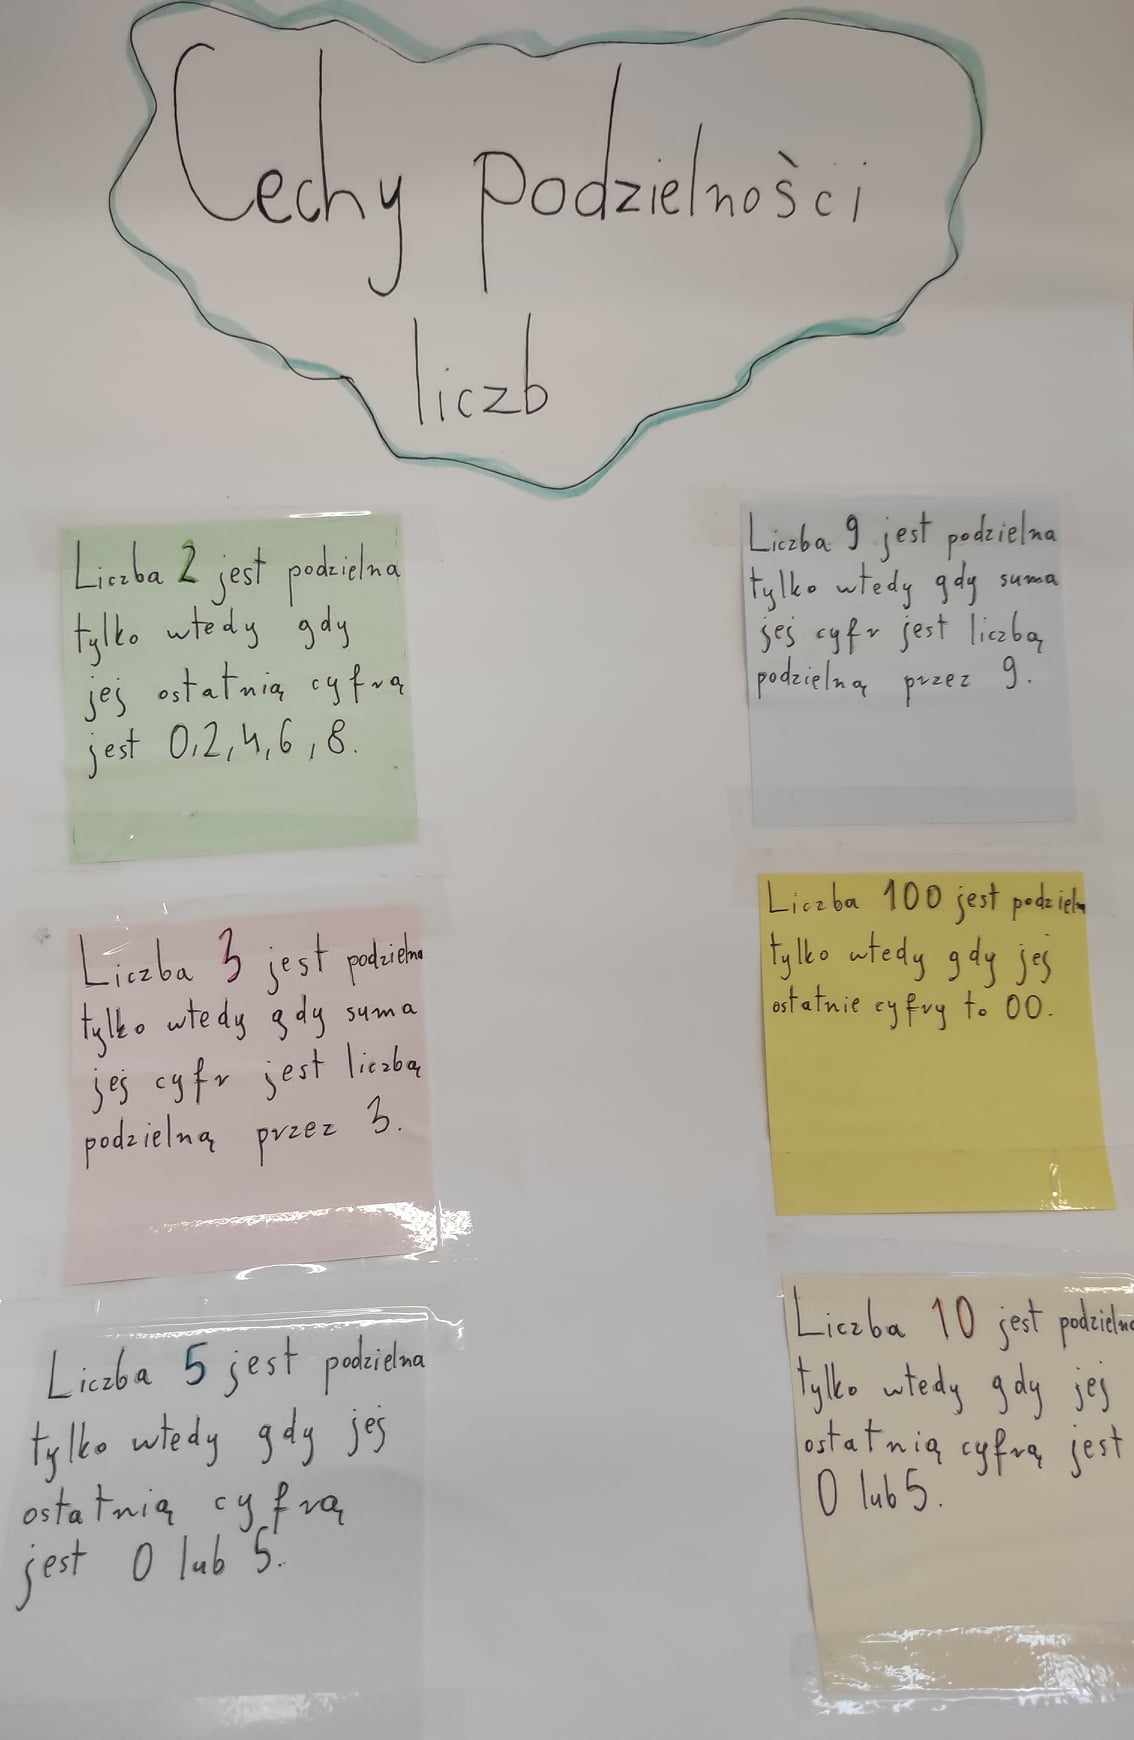 Cechy podzielności
liczb
Liczba 2 jest podzielna
tylko wtedy gdy
jej ostatnią cyfrą
jest 0,2,4,6,8.
Liczba 3 jest podzielna
tylko wtedy gdy suma
jej cyfr jest liczbą
podzielną przez 3.
Liczba 5 jest podzielna
tylko wtedy gdy jej
ostatnią cyfrą
jest 0 lub 5.
Liczba 9 jest podzielna
tylko wtedy gdy suma
jej cyfr jest liczbą
podzielną przez 9.
Liczba 100 jest podzielna
tylko wtedy gdy jej
ostatnie cyfry to 00.
Liczba 10 jest podzielna
tylko wtedy gdy jej
ostatnią cyfrą jest
0 lub 5.